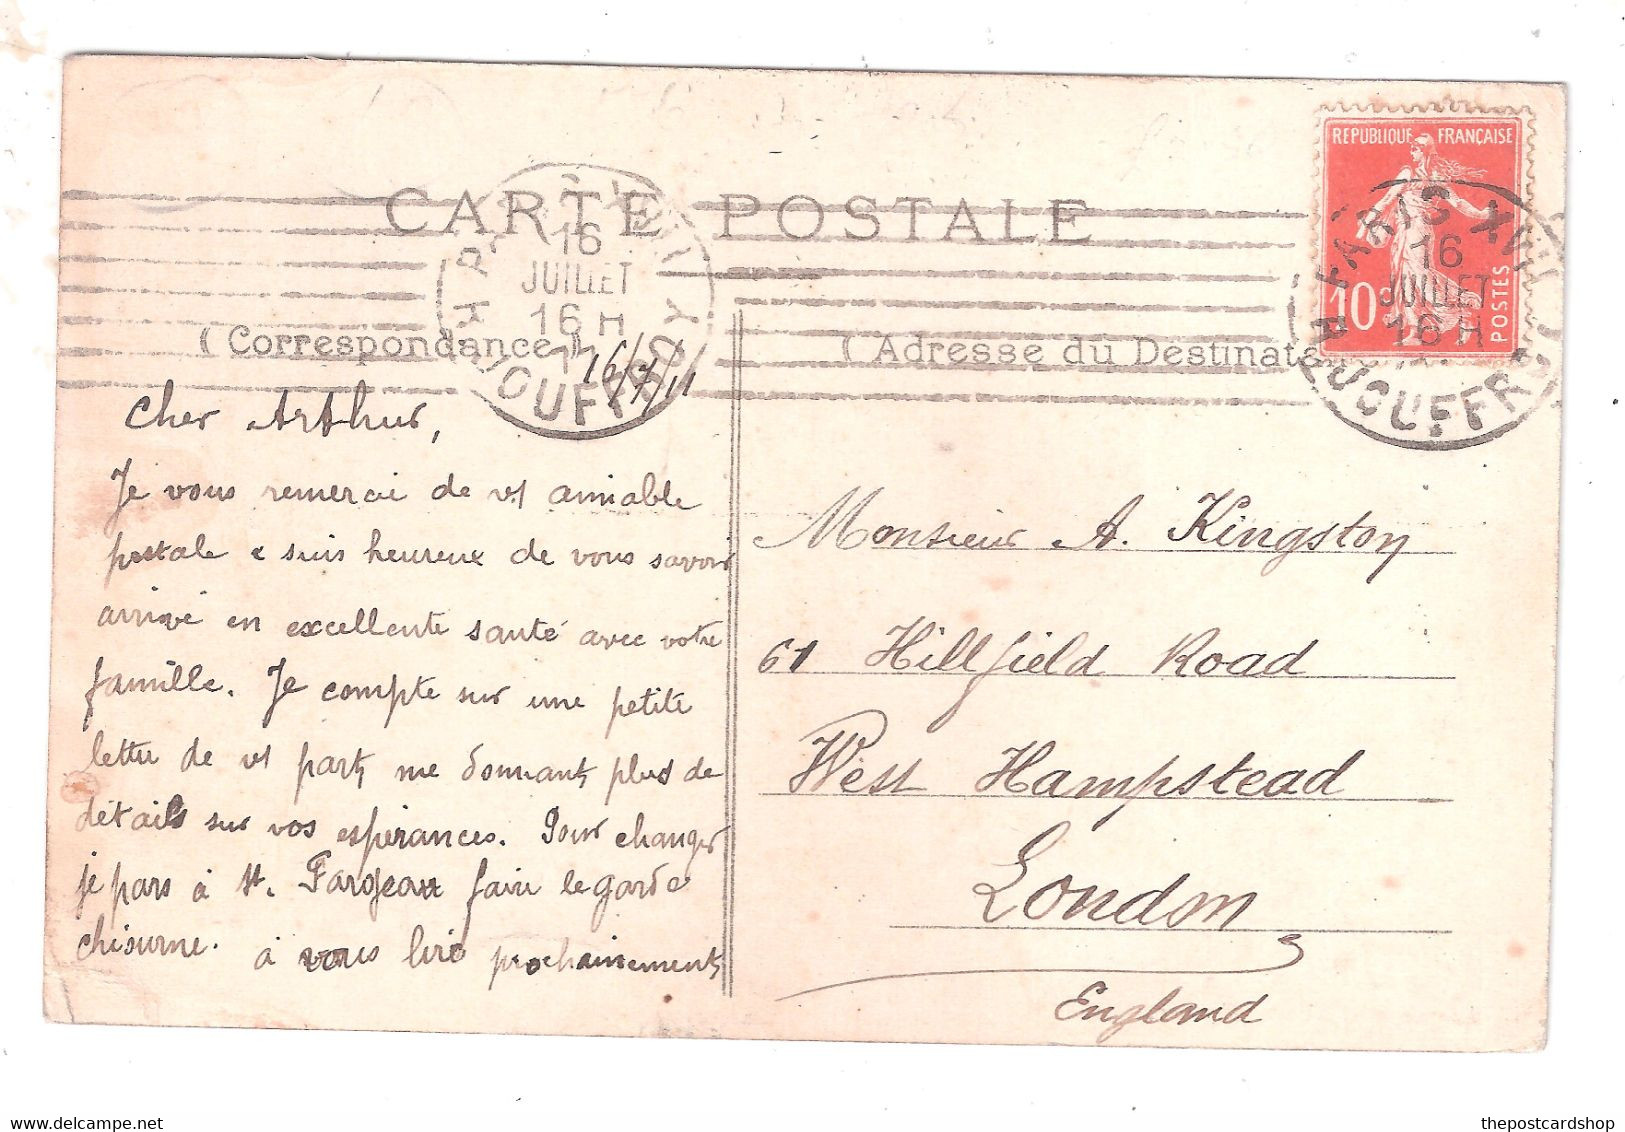 CARTE POSTALE
REPUBLIQUE FRANÇAISE
10 c
POSTES
16
JUILLET
16 H
PARIS XVII
16
JUILLET
16 H
JOUFFROY
( Correspondance )
( Adresse du Destinat
16/7/11
Cher Arthur,
Je vous remercie de vt amiable
postale & suis heureux de vous savoir
arrivé en excellente santé avec votre
famille. Je compte sur une petite
lettre de vt part, me donnant plus de
détails sur vos espérances. Pour changer
je pars à St. Fargeau faire le garde
chiourme. à vous lire prochainement
Monsieur A. Kingston
61 Hillfield Road
West Hampstead
London
England
thepostcardshop